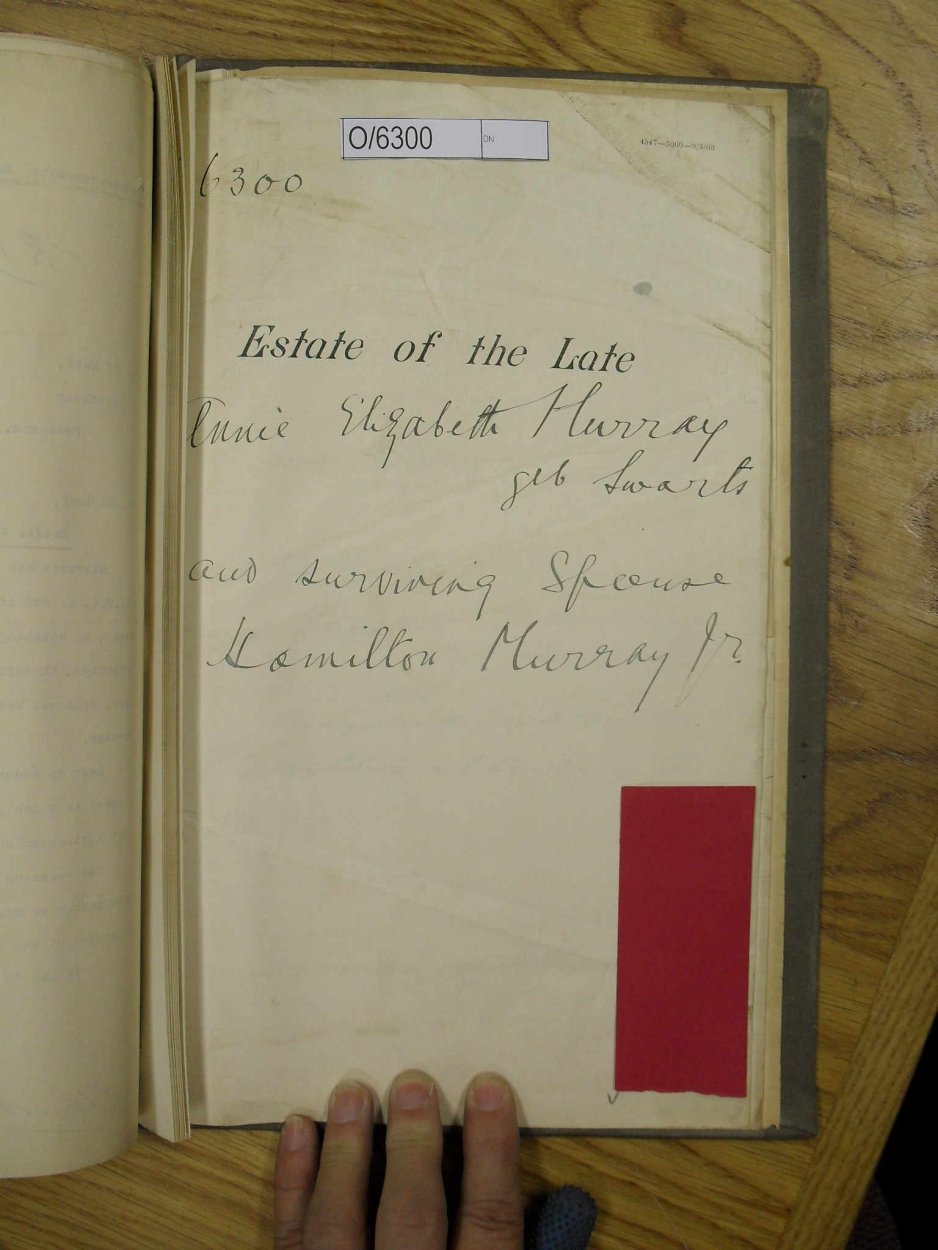 O/6300 ON
4547—5000—9/3/05
6300
Estate of the Late
Annie Elizabeth Murray
geb Swarts
and surviving Spouse
Hamilton Murray Jr.